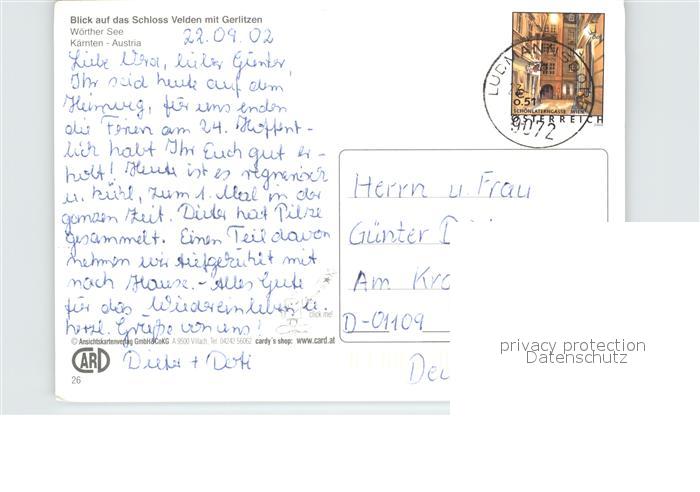 Blick auf das Schloss Velden mit Gerlitzen
Wörther See
Kärnten - Austria
22.09.02
Liebe Vera, lieber Günter,
Ihr seid heute auf dem
Heimweg, für uns enden
die Ferien am 24. Hoffent-
lich habt Ihr Euch gut er-
holt! Heute ist es regnerisch
u. kühl, zum 1. Mal in der
ganzen Zeit. Dieter hat Pilze
gesammelt. Einen Teil davon
nehmen wir tiefgekühlt mit
nach Hause. - Alles Gute
für das Wiedereinleben u.
herzl. Grüße von uns!
Dieter + Doti
click me!
© Ansichtskartenverlag GmbH&CoKG A 9500 Villach, Tel. 04242 56062 cardy's shop: www.card.at
CARD
26
€
0.51
SCHÖNLATERNGASSE WIEN
ÖSTERREICH
LUDMANNSDORF
9072
Herrn u. Frau
Günter
Am
D-01109
privacy protection
Datenschutz